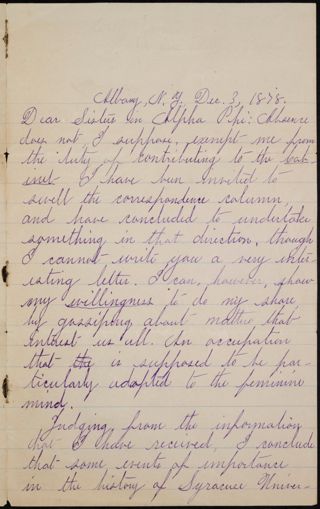 Albany, N. Y. Dec. 3, 1878.
Dear Sisters in Alpha Phi: Absence
does not I suppose, exempt me from
the duty of contributing to the cab-
inet I have been invited to
swell the correspondence column,
and have concluded to undertake
something in that direction, though
I cannot write you a very inter-
esting letter. I can, however, show
my willingness to do my share,
by gossiping about matters that
interest us all. An occupation
that the is supposed to be par-
ticularly adapted to the feminine
mind.
Judging from the information
that I have received, I conclude
that some events of importance
in the history of Syracuse Univer-